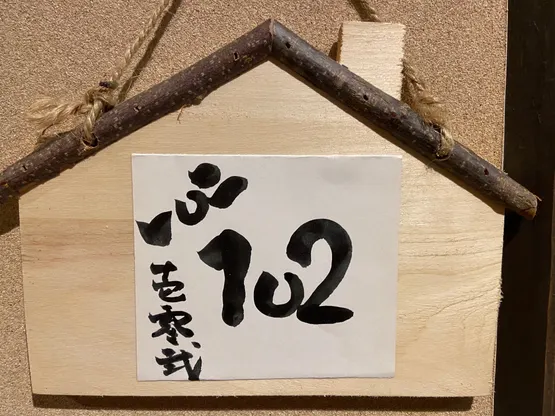 ふ
102
壱零弐